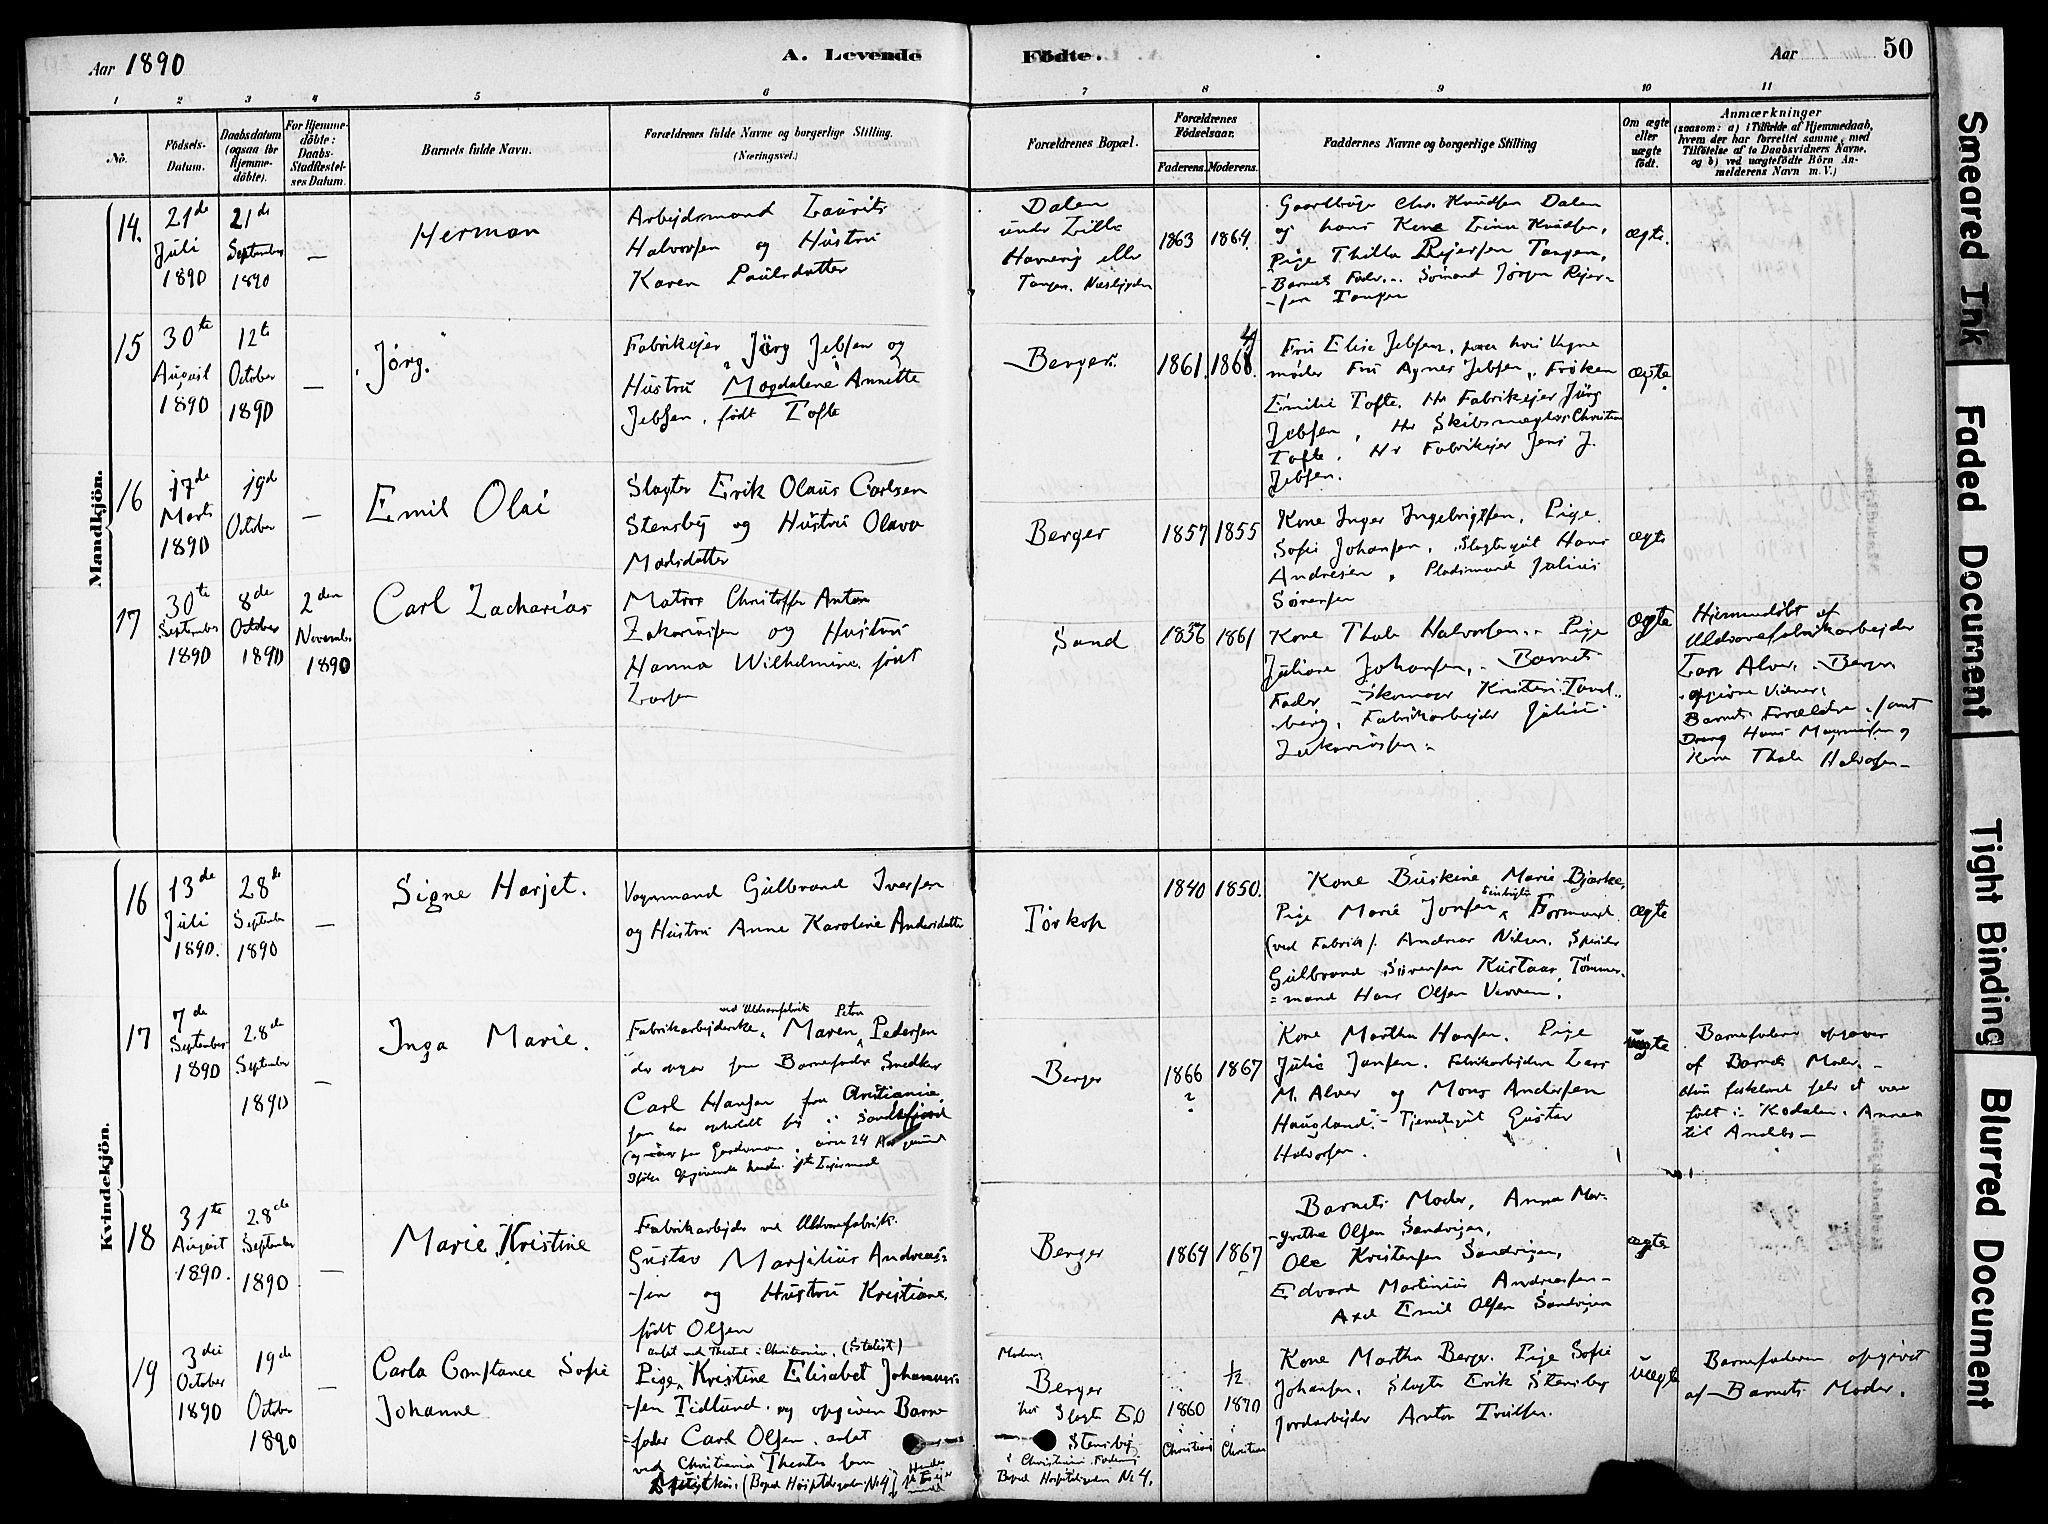 Aar 1890
A. Levende
Födte.
Aar
50
1
2
3
4
5
6
7
8
9
10
11
No.
Födsels-
Datum.
Daabsdatum
(ogsaa for
Hjemme-
döbte).
For Hjemme-
döbte:
Daabs-
Stadfæstel-
ses Datum.
Barnets fulde Navn.
Forældrenes fulde Navne og borgerlige Stilling.
(Næringsvei.)
Forældrenes Bopæl.
Forældrenes
Födselsaar.
Faderens.
Moderens.
Faddernes Navne og borgerlige Stilling
Om ægte
eller
uægte
födt.
Anmærkninger
(saasom: a) i Tilfælde af Hjemmedaab,
hvem der har forrettet samme, med
Tilföielse af to Daabsvidners Navne,
og b) ved uægtefödte Börn An-
melderens Navn m. V.)
Mandkjön.
14.
21de
Juli
1890
21de
September
1890
—
Herman
Arbejdsmand Laurits
Halvorsen og Hustru
Karen Paulsdatter
Dalen
under Lille
Havnevig eller
Tangen. Næsbygden
1863
1864.
Gaardbruger Chr. Knudsen Dalen
og hans Kone Knudsen,
Pige Thilla Rejersen Tangen,
Barnets Fader. Sømand Jörgen Rejer-
-sen Tangen
ægte.
15
30te
August
1890
12te
October
1890
—
Jörg.
Fabrikejer Jörg Jebsen og
Hustru "Magdalene" Annette
Jebsen, født Tofte
Berger.
1861.
1868.
Fru Elise Jebsen, paa hvis Vegne
møder Fru Agnes Jebsen, Frøken
Emilie Tofte. Hr Fabrikejer Jürg
Jebsen, Hr Skibsmægler Christian
Tofte. Hr Fabrikejer Jens J.
Jebsen.
ægte
16
17de
Marts
1890
19de
October
—
Emil Olai
Slagter Erik Olaus Carlsen
Stensby og Hustru Olava
Madsdatter
Berger
1857
1855
Kone Inger Ingebrigtsen, Pige
Sofie Johansen, Slagtergut Hans
Andresen, Pladsmand Julius
Sørensen
ægte
17
30te
September
1890
8de
October
1890
2den
November
1890
Carl Zacharias
Matros Christoffer Anton
Zakariasen og Hustru
Hanna Wilhelmine født
Larsen
Sand
1856
1861
Kone Thale Halvorsen. Pige
Juliane Johansen, Barnets
Fader Skomager Kristen Tand-
-berg, Fabrikarbejder Julius
Zakariassen.
ægte
Hjemmedøbt af
Uldvarefabrikarbejder
Lars Alver. Berger
opgivne Vidner:
Barnets Forældre, samt
Dreng Hans Magnusen og
Kone Thale Halvorsen
Kvindekjön.
16
13de
Juli
1890.
28de
September
1890
—
Signe Harjet.
Vognmand Gulbrand Iversen
og Hustru Anne Karoline Andersdatter
Tørkop
1840
1850.
Kone Buskine Marie Bjerke,
Pige Marie Jonsen Formand
(ved Fabrik). Andreas Nilsen. Spinder
Gulbrand Sörensen Tømmer-
=mand Hans Olsen
ægte
17
7de
September
1890
28de
September
1890
—
Inga Marie.
ved Uldvarefabrik Petra
Fabrikarbejderske, Maren Pedersen
der opgav som Barnefader Smedker
Carl Hansen fra Christiania,
som har opholdt sig i Sandefjord
Berger
1866
?
1867
Kone Martha Hansen. Pige
Julie Jansen. Fabrikarbejder Lars
M. Alver og Mons Andersen
Haugland. Tjenestgut Gustav
Halvorsen.
uægte
Barnefaderen opgiver
af Barnets Moder.
født i Kodalen, Annex
til Andebo
18
31te
August
1890.
28de
September
1890
—
Marie Kristine
Fabrikarbejder ved Uldvarefabrik.
Gustav Marselius Andreas-
-sen og Hustru Kristiane,
født Olsen
Berger
1864
1867
Barnets Moder, Anna Mar-
-grethe Olsen Sandvigen,
Ole Kristensen Sandvigen,
Edvard Martinius Andreassen
Axel Emil Olsen Sandvigen
ægte
19
3die
October
1890
19de
October
1890
—
Carla Constance Sofie
Johanne
ansat ved Theatret i Christiania. (Statist)
Pige, Kristine Elisabet Johannes-
-sen Tidlund. og opgiven Barne-
=fader Carl Olsen. ansat
ved Christiania Theater som
(Bopæl Hospitalsgaden No 4)
Moderen
Berger
hos Slagter E.O
Stensby
i Christiania. Faderen
Bopæl Hospitalsgaden No 4.
1860
Christiania
½
1870
Christiania
Kone Martha Berger. Pige Sofie
Johansen, Slagter Erik Stensby
Jordarbejder Anton Truelsen.
uægte
Barnefaderen opgivet
af Barnets Moder.
Smeared Ink
Faded Document
Tight Binding
Blurred Document